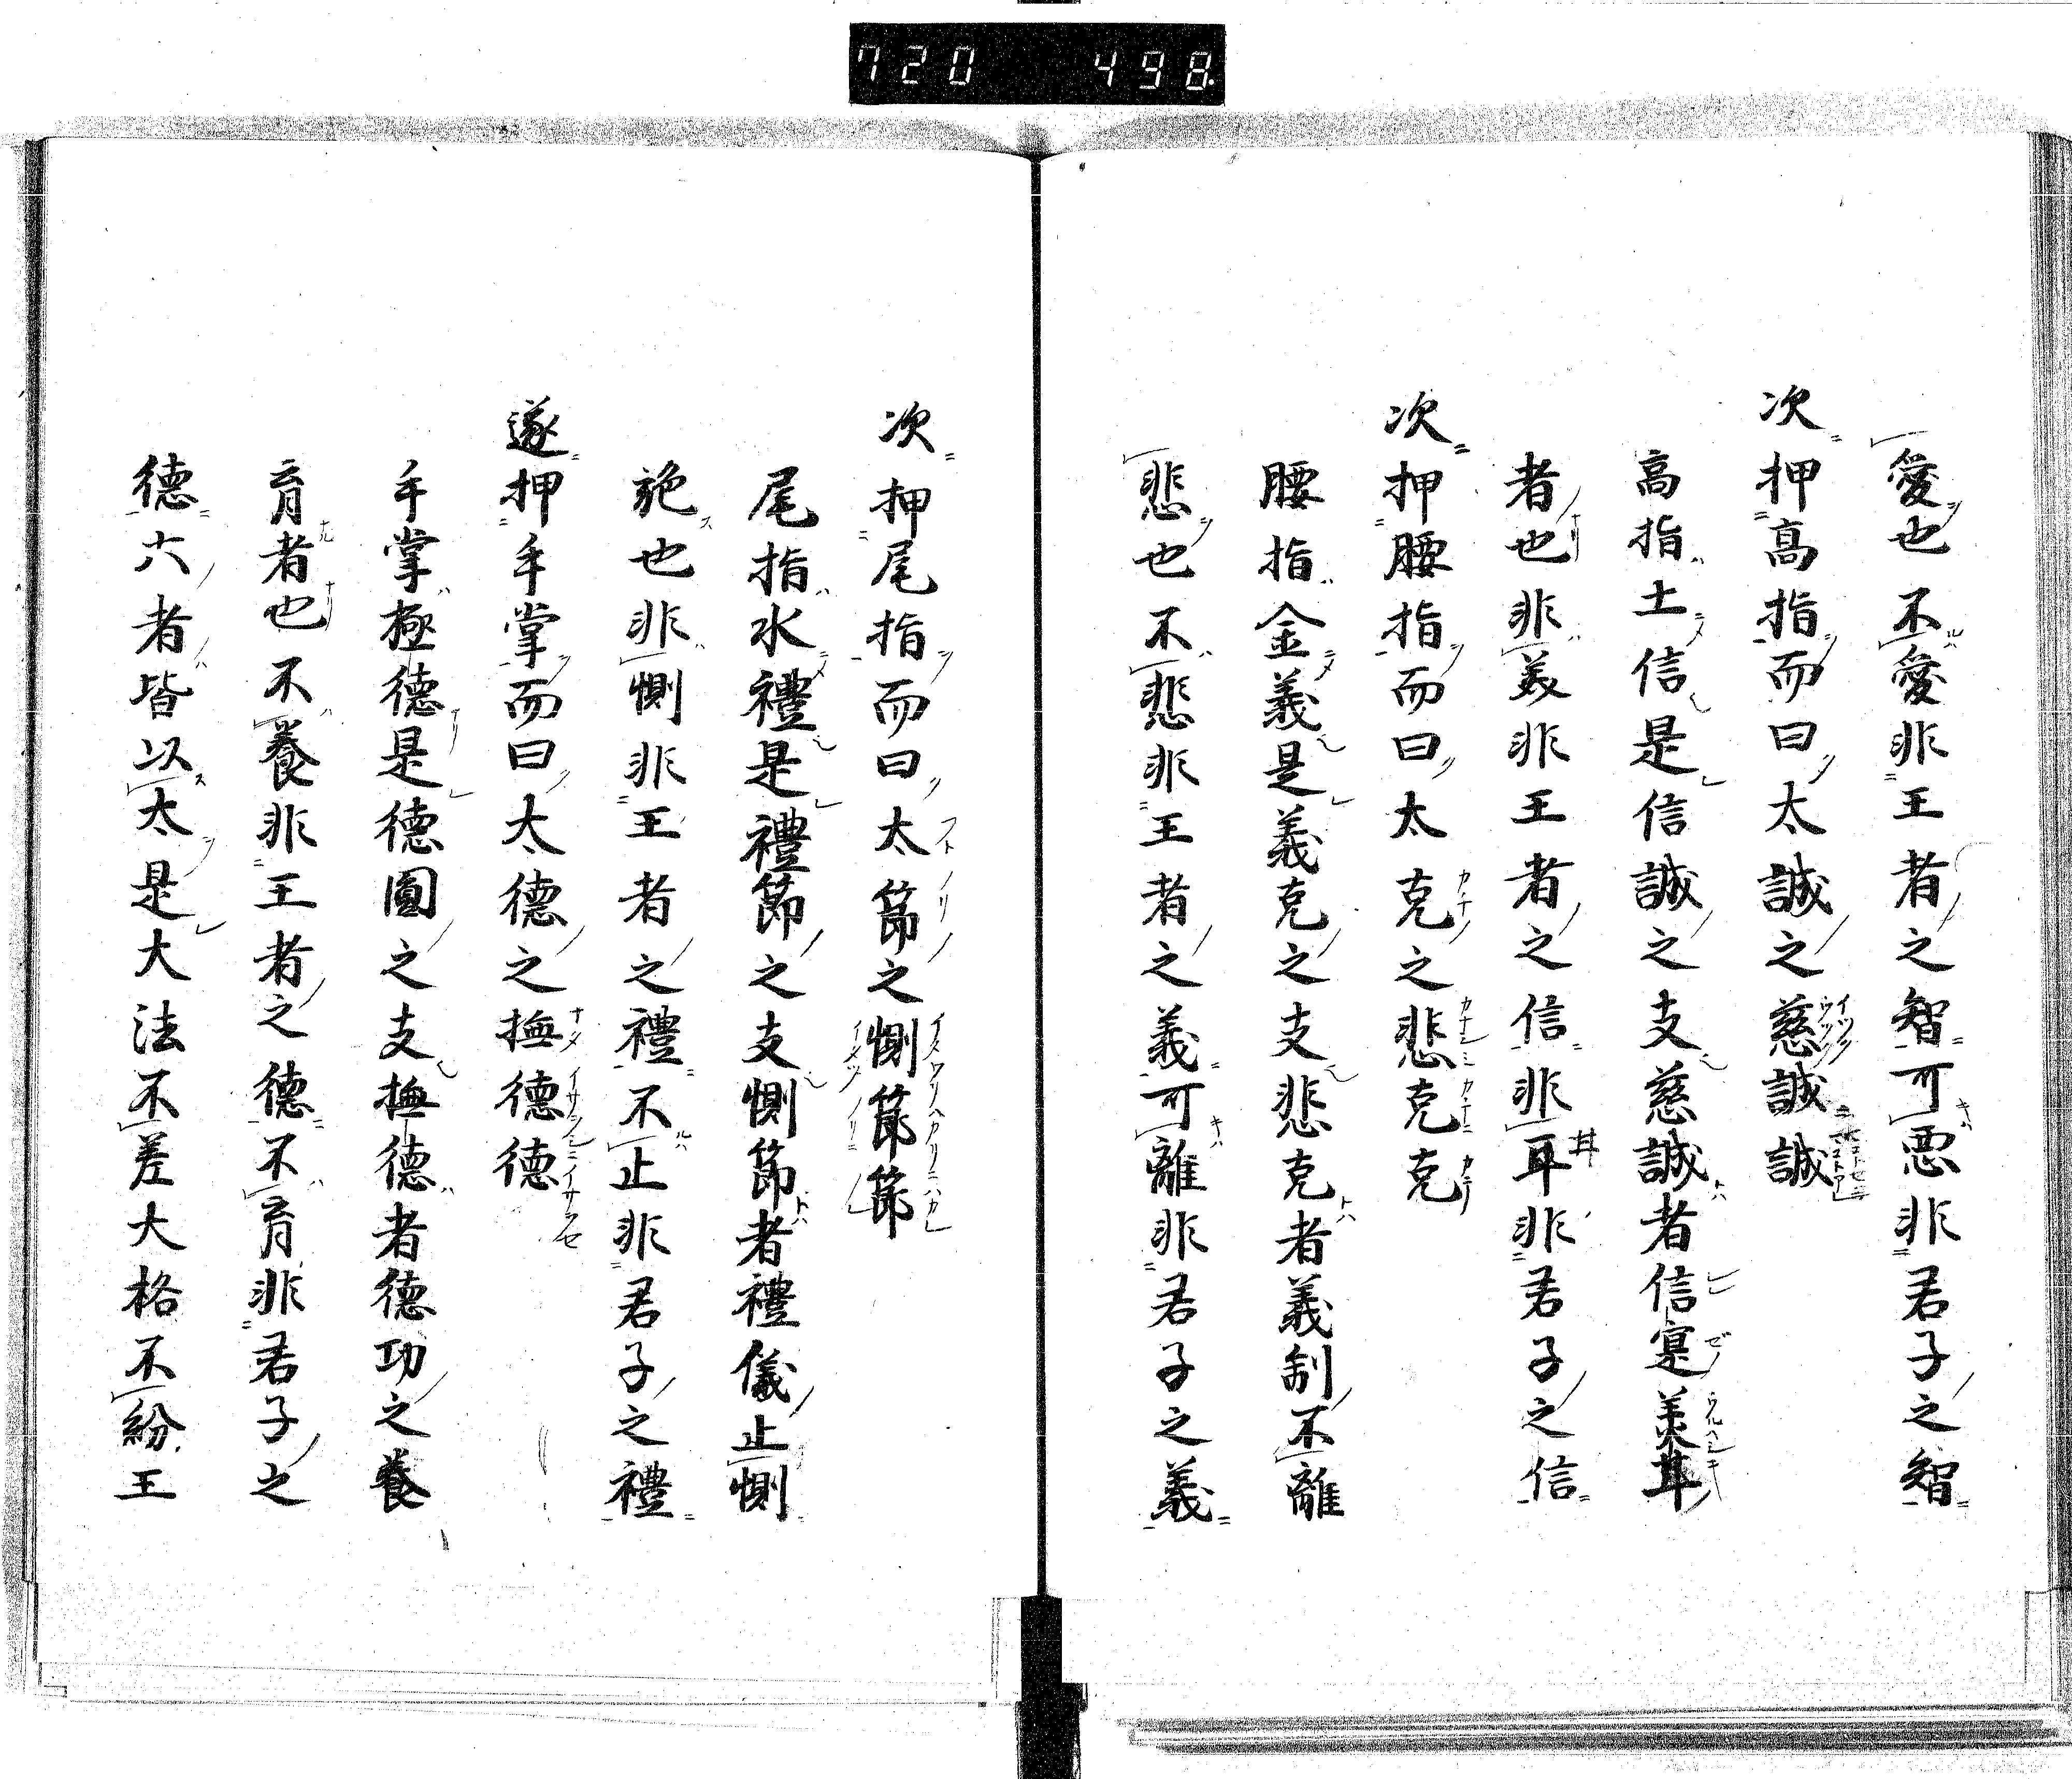 720 498
愛也不愛非王者之智可惡非君子之智
次押高指而曰太誠之慈誠誠
高指土信是信誠之支慈誠者信寔美其
者也非美非王者之信非其非君子之信
次押腰指而曰太克之悲克克
腰指金義是義克之支悲克者義制不離
悲也不悲非王者之義可離非君子之義
次押尾指而曰太節之惻節節
尾指水禮是禮節之支惻節者禮儀止惻
施也非惻非王者之禮不止非君子之禮
遂押手掌而曰太德之撫德德
手掌極德是德圓之支撫德者德功之養
育者也不養非王者之德不育非君子之
德六者皆以太是大法不差大格不紛王